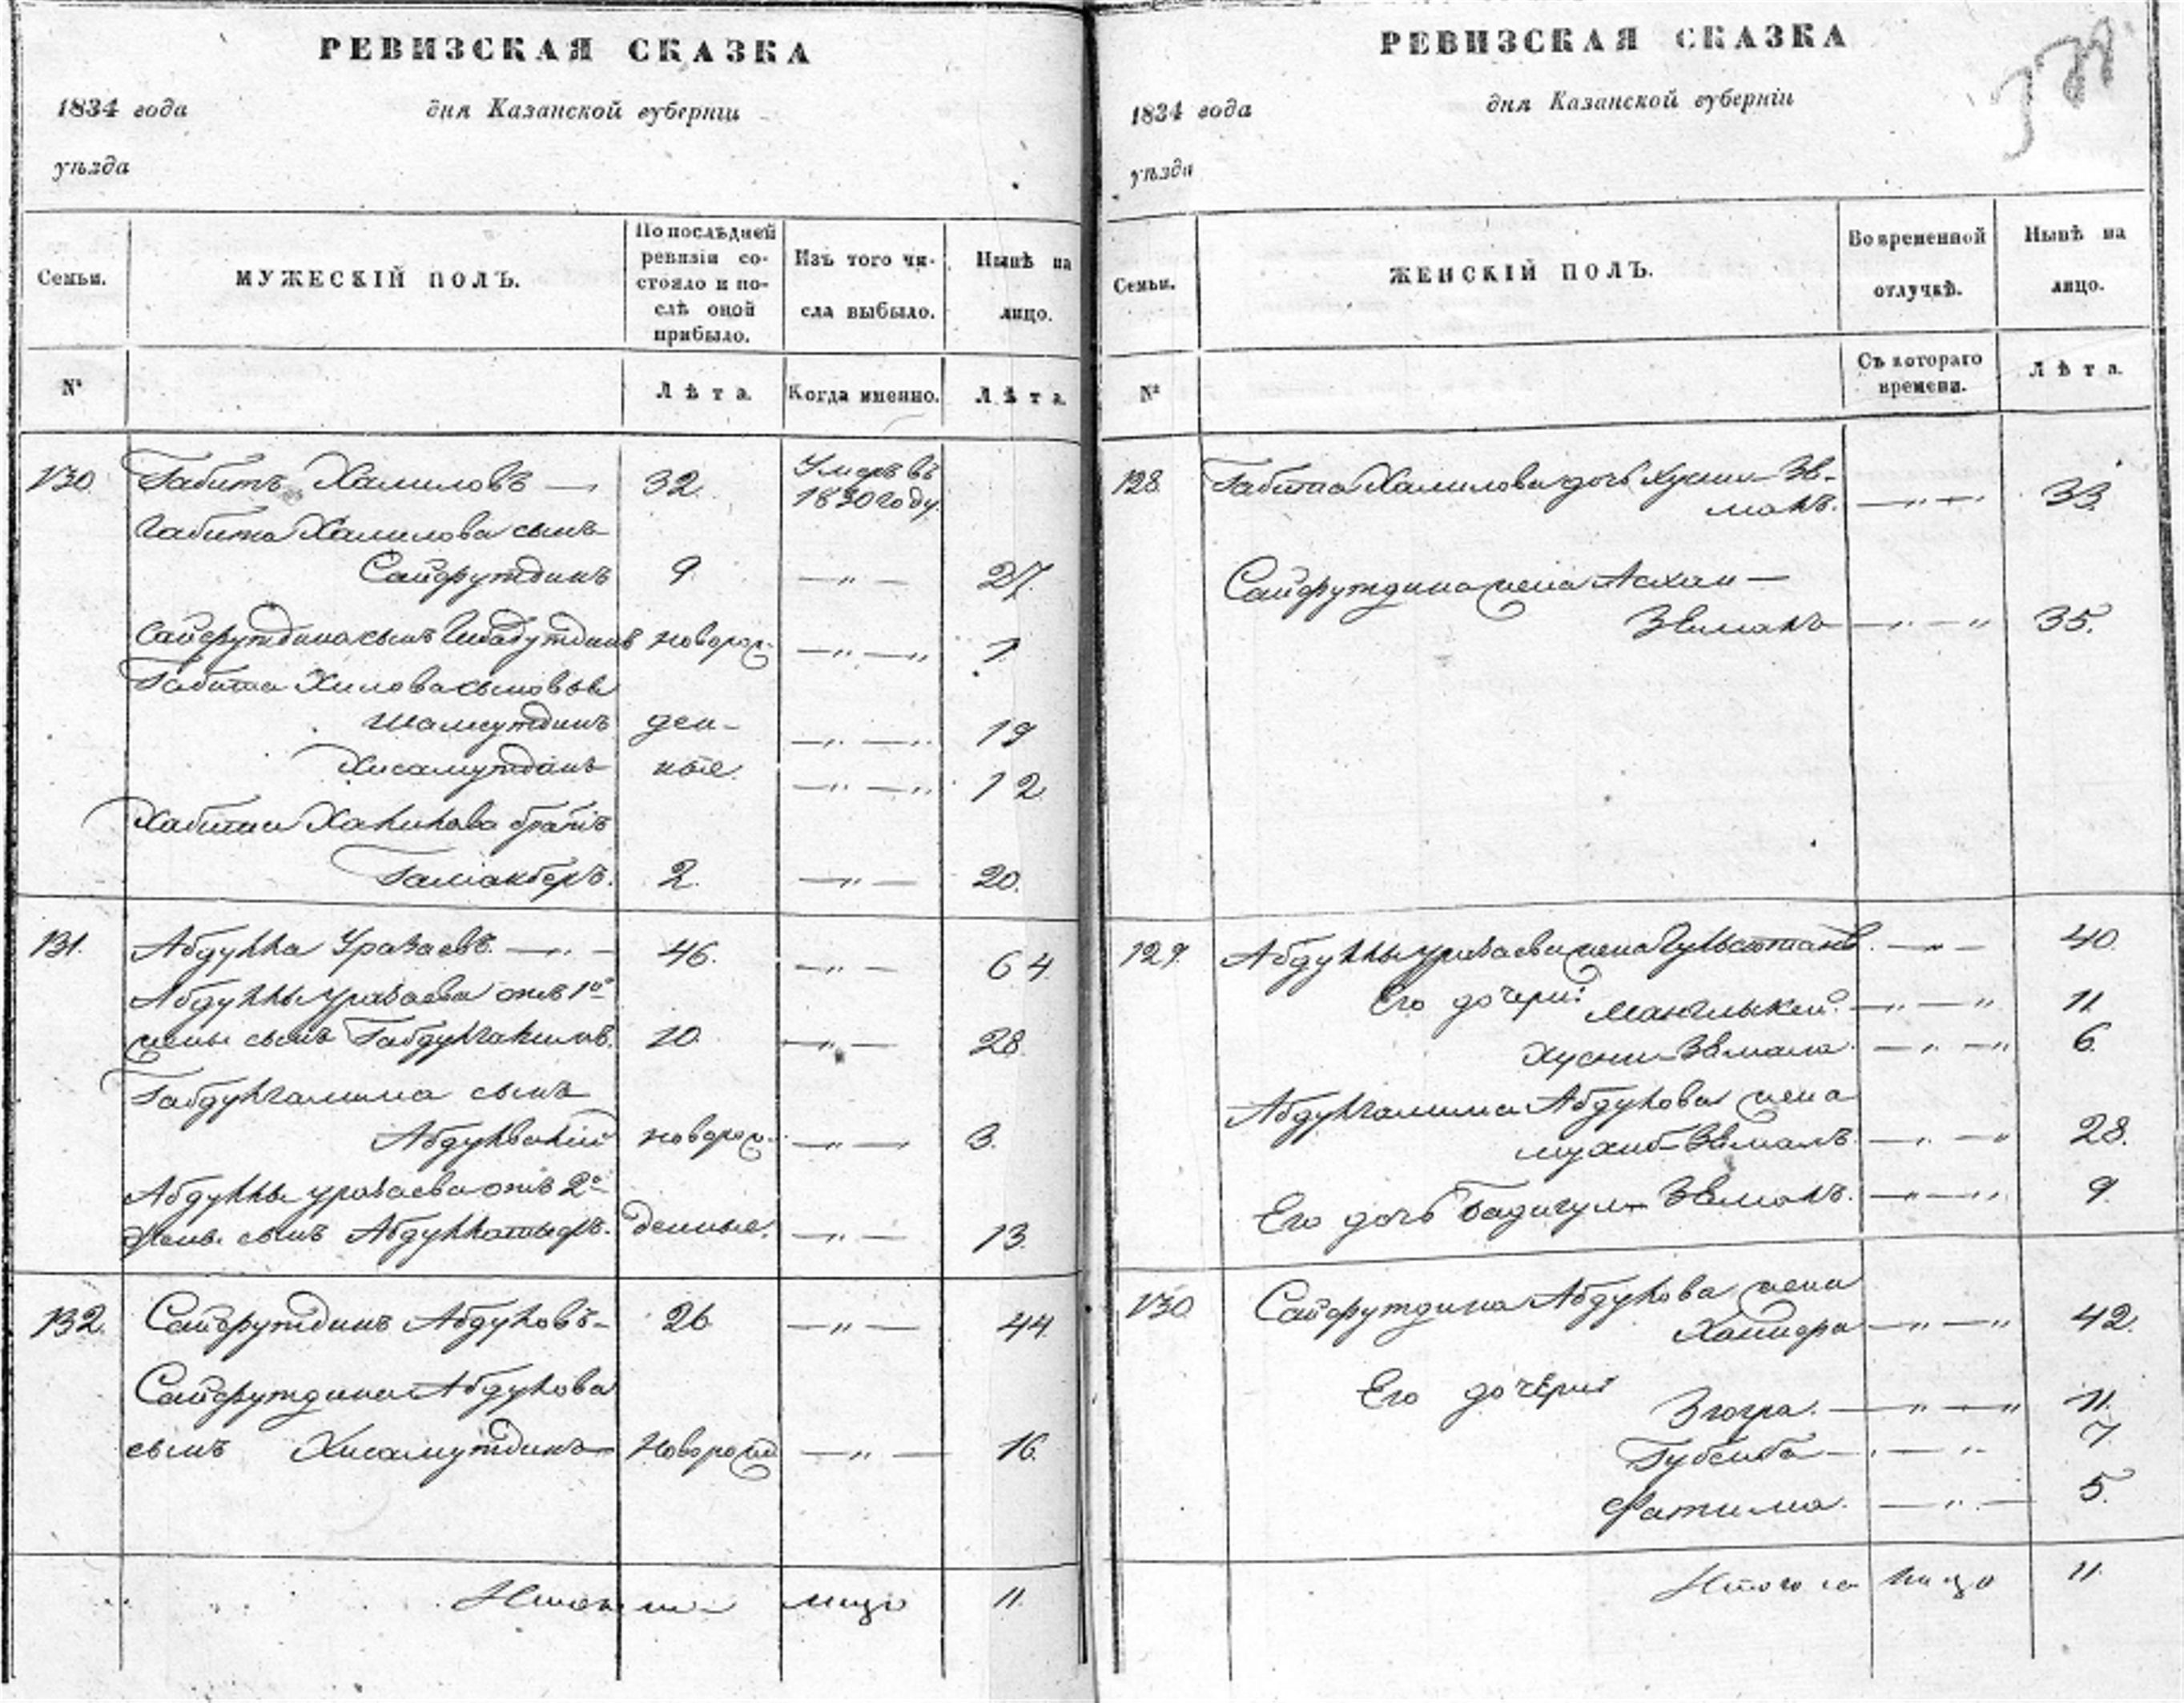 РЕВИЗСКАЯ СКАЗКА
1834 года дня Казанской губерніи
уѣзда
Семьи.
МУЖЕСКІЙ ПОЛЪ.
По послѣдней ревизіи со-
стояло и по-
слѣ оной
прибыло.
Изъ того чи-
сла выбыло.
Нынѣ на
лицо.
№
Лѣта.
Когда именно.
Лѣта.
130 Габитъ Халиловъ — 32. Умеръ въ
1830 году.
Габита Халилова сынъ
Сайфутдинъ 9. —"— 27.
Сайфутдина сынъ Шабутдинъ новорож- —"—" 1.
Габита Хилова сыновья
Шамсутдинъ ден- —"—" 19
Хисамутдинъ ные. —"—" 12
Хабита Халилова братъ
Галіакберъ. 2. —"— 20.
131. Абдулла Уразаевъ. —"— 46. —"— 64.
Абдуллы Уразаева отъ 1й
жены сынъ Габдулгалимъ. 10. —"— 28.
Габдулгалима сынъ
Абдулвалій новорож- —"— 3.
Абдуллы Уразаева отъ 2й
жены сынъ Абдулкатыръ. денные. —"— 13.
132. Сайфутдинъ Абдуловъ- 26 —"— 44.
Сайфутдина Абдулова
сынъ Хисамутдинъ Новорожд —"— 16.
Итого на лицо 11.
РЕВИЗСКАЯ СКАЗКА
1834 года дня Казанской губерніи
уѣзда
Семьи.
ЖЕНСКІЙ ПОЛЪ.
Во временной
отлучкѣ.
Нынѣ на
лицо.
№
Съ котораго
времени.
Лѣта.
128. Габита Халилова дочь Хусни-Зе-
малъ. —"— 33.
Сайфутдина жена Асхап—
Земалъ —"—" 35.
129. Абдуллы Уразаева жена Гульсютанъ. —"— 40.
Его дочери Манглыкей. —"—" 11.
Хусни-Земала. —"—" 6.
Абдулгалима Абдулова жена
мухиб-Земалъ. —"—" 28.
Его дочь Бадигул-Земалъ. —"—" 9.
130 Сайфутдина Абдулова жена
—"—" 42.
Его дочери
Зюгра. —"—" 11.
—"— 7.
Фатима. —"— 5.
Итого на лицо 11.